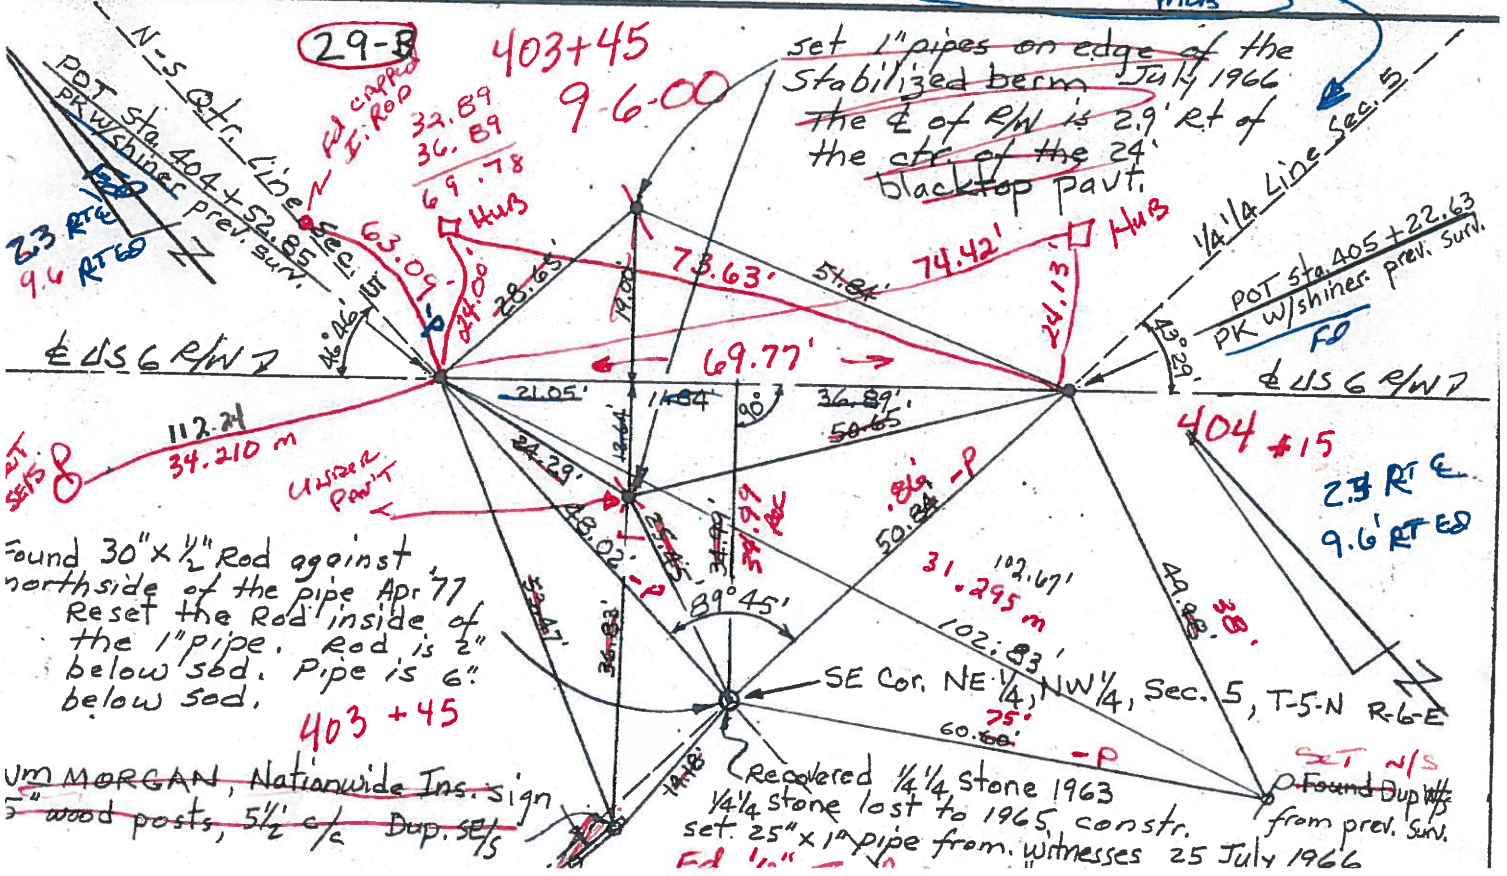 HUB
29-B
403+45
9-6-00
Fd capped
I. ROD
32.89
36.89
69.78
set 1" pipes on edge of the
stabilized berm July 1966
the ℄ of R/W is 2.9' Rt of
the ctr. of the 24'
blacktop pavt.
N-S Qtr. Line Sec. 5
POT sta. 404+52.85
PK w/shiner
prev. surv.
2.3 RT ℄
9.6 RT EP
HUB
HUB
63.09
-P
24.00'
28.65'
19.02'
73.63'
51.84'
74.42'
24.13'
1/4 1/4 Line Sec. 5
POT sta. 405+22.63
PK w/shiner. prev. surv.
Fd
46°46'
43°29'
℄ US 6 R/W
69.77'
℄ US 6 R/W
21.05'
11.84'
90°
36.89'
50.65'
12.64'
24.29'
112.24
34.210 m
UNDER
PAV'T
404 #15
RT ℄
9.6' RT EP
48.02'
-P
25.45'
34.99'
34.99
.86' -P
50.84
89°45'
31.295 m
102.67'
102.83'
49.
38'
52.47'
36.83'
Found 30" x 1/2" Rod against
northside of the pipe Apr '77
Reset the Rod inside of
the 1" pipe. Rod is 2"
below sod. Pipe is 6"
below sod.
403 +45
SE Cor. NE 1/4, NW 1/4, Sec. 5, T-5-N R-6-E
75'
60.60'
-P
19.18'
SET N/S
Found Dup
from prev. surv.
MORGAN, Nationwide Ins. sign
5" wood posts, 5 1/2' c/c Dup. SE/s
Recovered 1/4 1/4 stone 1963
1/4 1/4 stone lost to 1965 constr.
set. 25" x 1" pipe from witnesses 25 July 1966